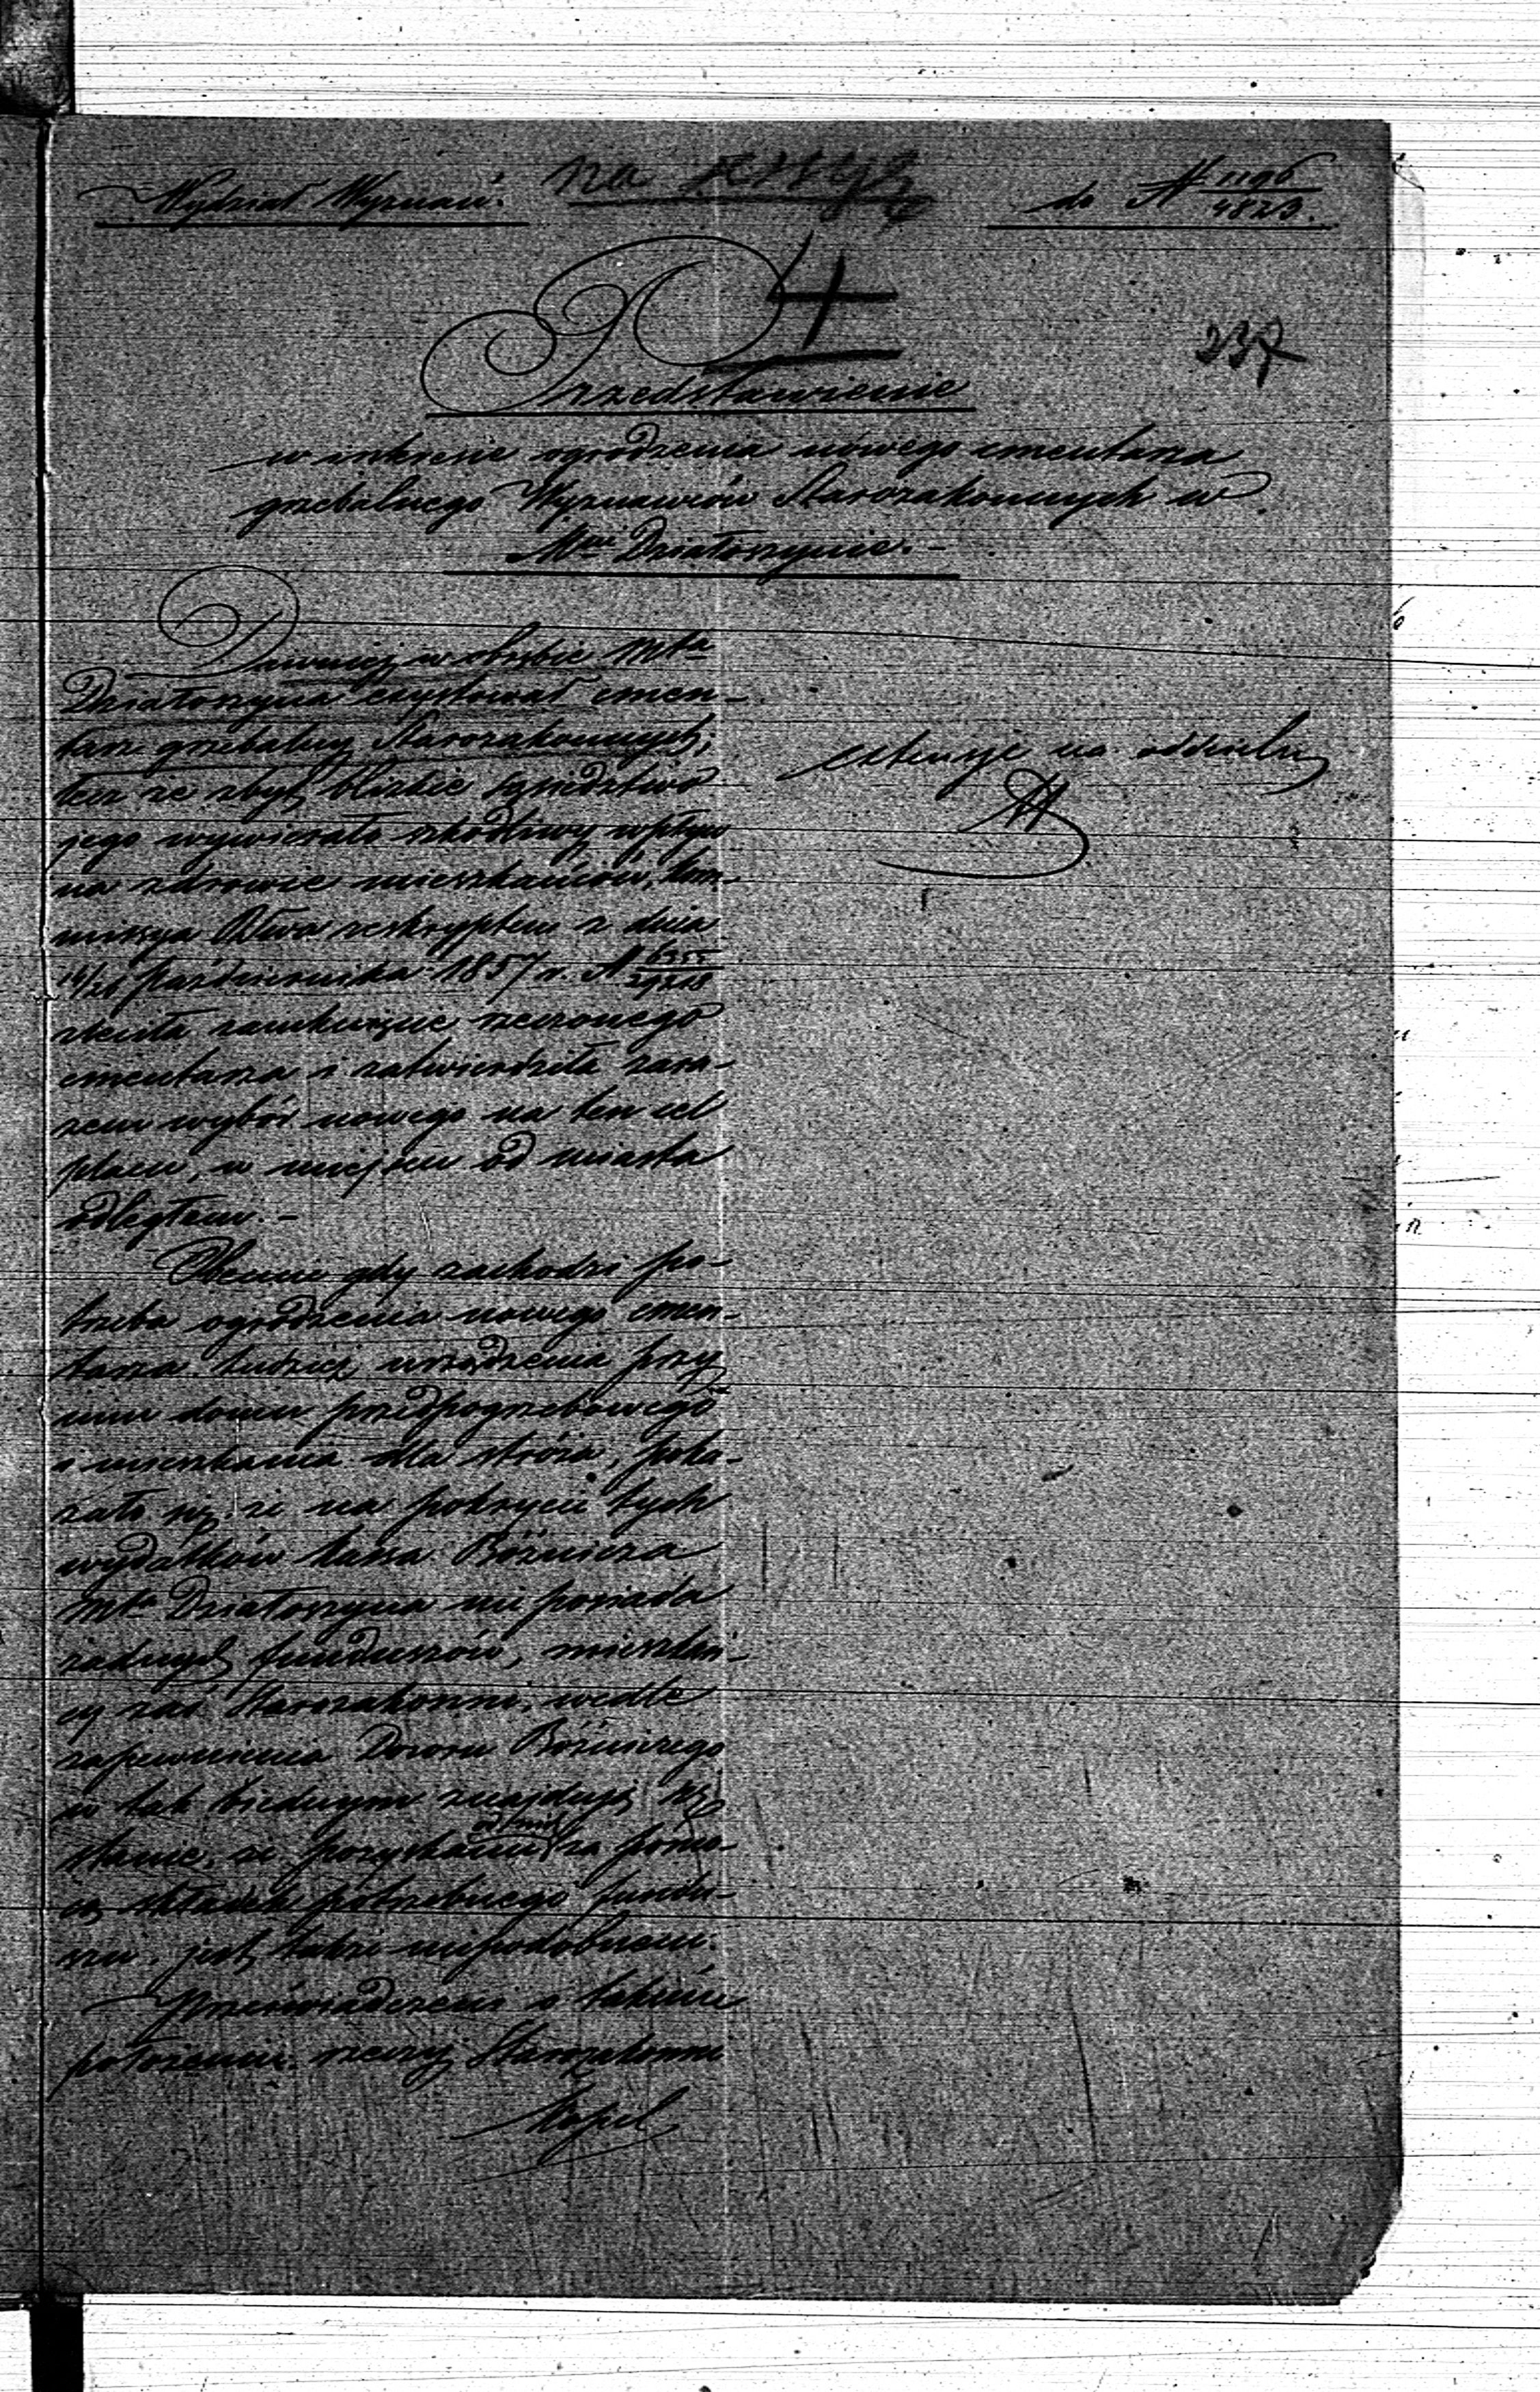 Wydział Wyznań.
na
do N 1196/4823.
237
Przedstawienie
w interesie ogrodzenia nowego cmentarza
grzebalnego Wyznawców Starozakonnych w
Mieście Działoszynie.-
Dawniej w obrębie Mta
Działoszyna exystował cmen-
tarz grzebalny Starozakonnych;
lecz że zbyt blizkie sąsiedztwo
jego wywierało szkodliwy wpływ
na zdrowie mieszkańców, Kom-
missya Rządowa reskryptem z dnia
14/26 Października 1857 r. N 6955/29218
zleciła zamknięcie rzeczonego
cmentarza i zatwierdziła zara-
zem wybór nowego na ten cel
placu, w miejscu od miasta
odległem.-
Obecnie gdy zachodzi po-
trzeba ogrodzenia nowego cmen-
tarza tudzież urządzenia przy
nim domu przedpogrzebowego
i mieszkania dla stróża, poka-
zało się, że na pokrycie tych
wydatków kassa Bóżnicza
Mta Działoszyna nie posiada
żadnych funduszów, mieszkań-
cy zaś Starozakonni, wedle
zapewnienia Dozoru Bóźniczego
w tak biednym znajdują się
stanie, że pozyskanie od nich za pomo-
cą składek potrzebnego fundu-
szu, jest także niepodobnem.
Przeświadczeni o takiém
położeniu rzeczy Starozakonni